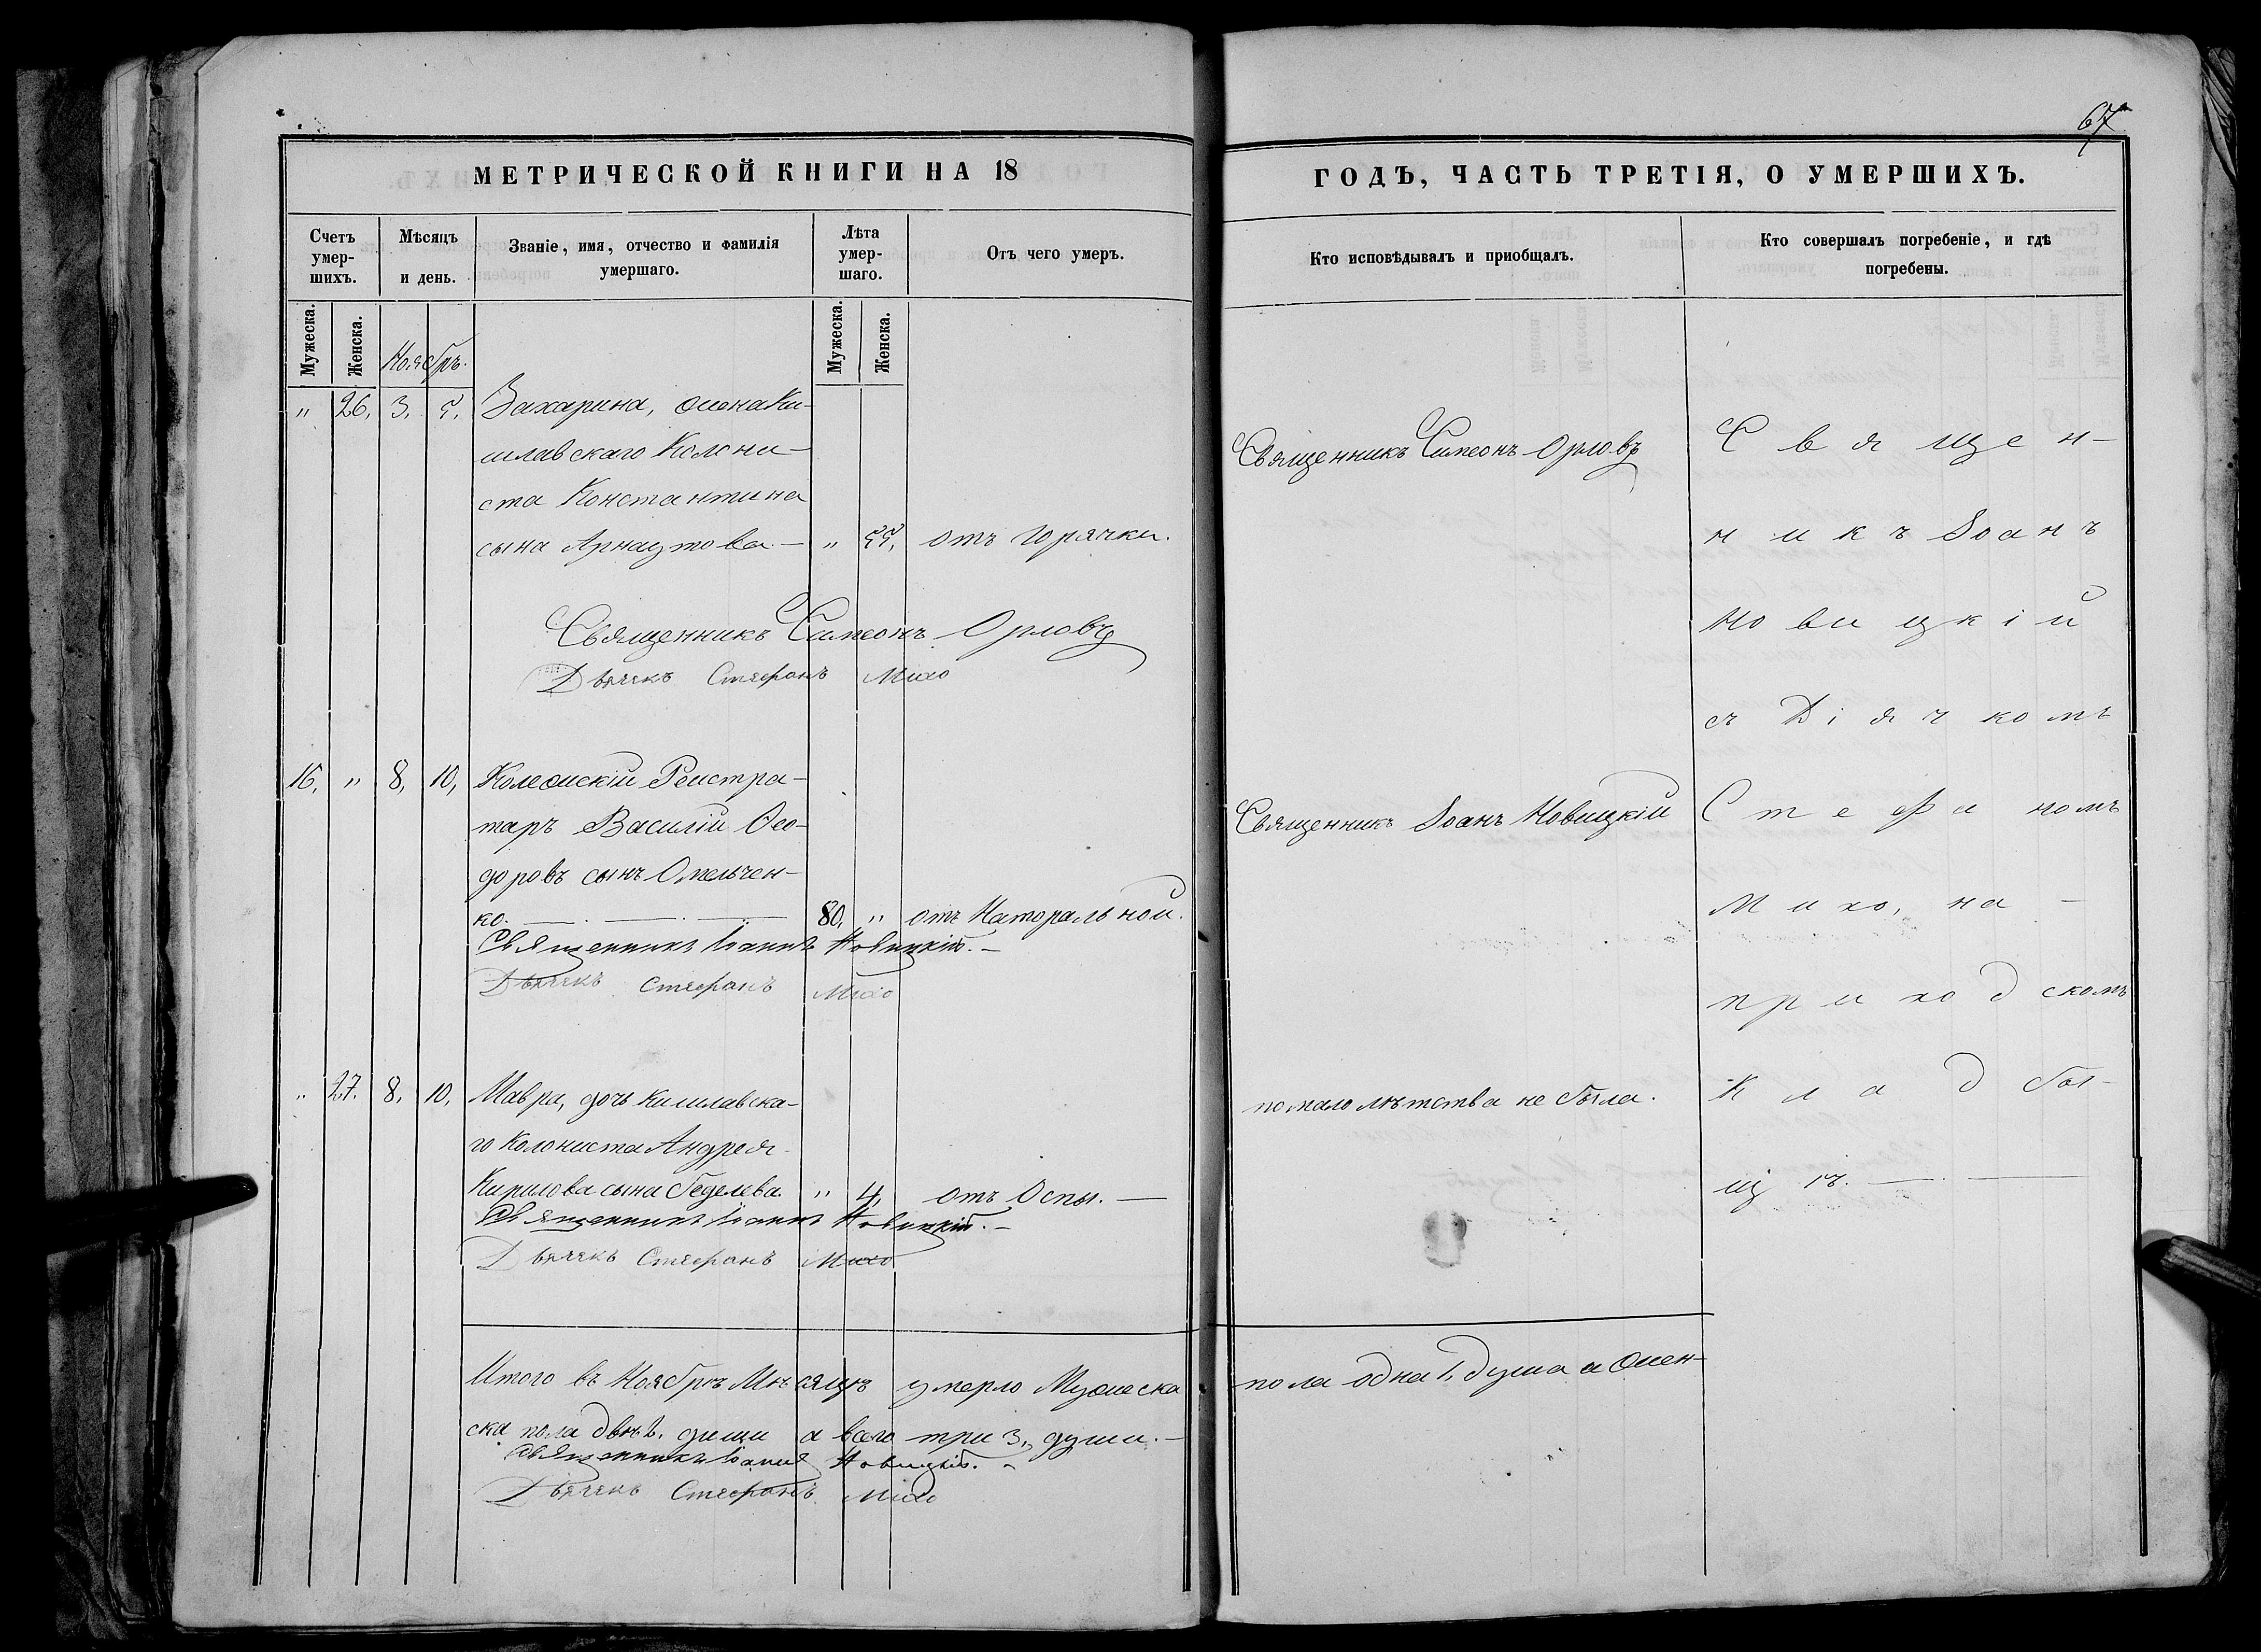 67
МЕТРИЧЕСКОЙ КНИГИ НА 18
Счетъ умер-шихъ.
Мѣсяцъ и день.
Званіе, имя, отчество и фамилія умершаго.
Лѣта умер-шаго.
Отъ чего умеръ.
Мужеска.
Женска.
Ноябрь.
Мужеска.
Женска.
" 26. 3. 5. Захарина, жена Ки-
шлавскаго Колони-
ста Константина
сына Арнаутова. — " 55. отъ горячки.
Священникъ Симеонъ Орловъ
Дьячекъ Стефанъ Михо
16. " 8. 10. Колежскій Реистра-
таръ Василій Ѳео-
доровъ сынъ Омельчен-
ко. — 80. " отъ Натуральной.
Священникъ Іоаннъ Новицкій. —
Дьячекъ Стефанъ Михо
" 27. 8. 10. Мавра, дочь Кишлавска-
го Колониста Андрея
Кирилова сына Беделева. " 4. отъ Оспы. —
Священникъ Іоаннъ Новицкій. —
Дьячекъ Стефанъ Михо
Итого въ Ноябрѣ Мѣсяцѣ умерло Мужеска
ска пола двѣ 2. души а всего три 3. души. —
Священникъ Іоаннъ Новицкій.
Дьячекъ Стефанъ Михо
ГОДЪ, ЧАСТЬ ТРЕТІЯ, О УМЕРШИХЪ.
Кто исповѣдывалъ и приобщалъ.
Кто совершалъ погребеніе, и гдѣ погребены.
Священникъ Симеонъ Орловъ
Священникъ Іоанъ Новицкій
по малолѣтства не была.
пола одна 1. душа а Жен-
Священ-
никъ Іоанъ
Новицкій
съ Діячкомъ
Стефаномъ
Михо, на
приходскомъ
Кладбы-
щѣ. —